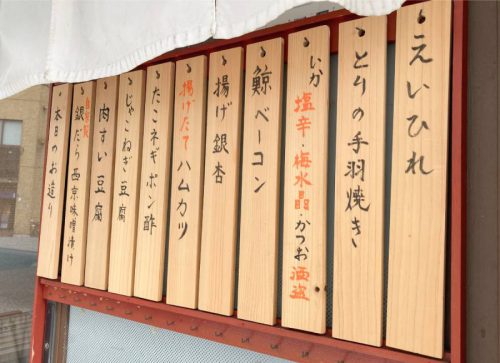 えいひれ
とりの手羽焼き
いか塩辛・梅水晶・かつお酒盗
鯨ベーコン
揚げ銀杏
揚げたてハムカツ
たこネギポン酢
じゃこねぎ豆腐
肉すい豆腐
自家製
銀だら西京味噌漬け
本日のお造り